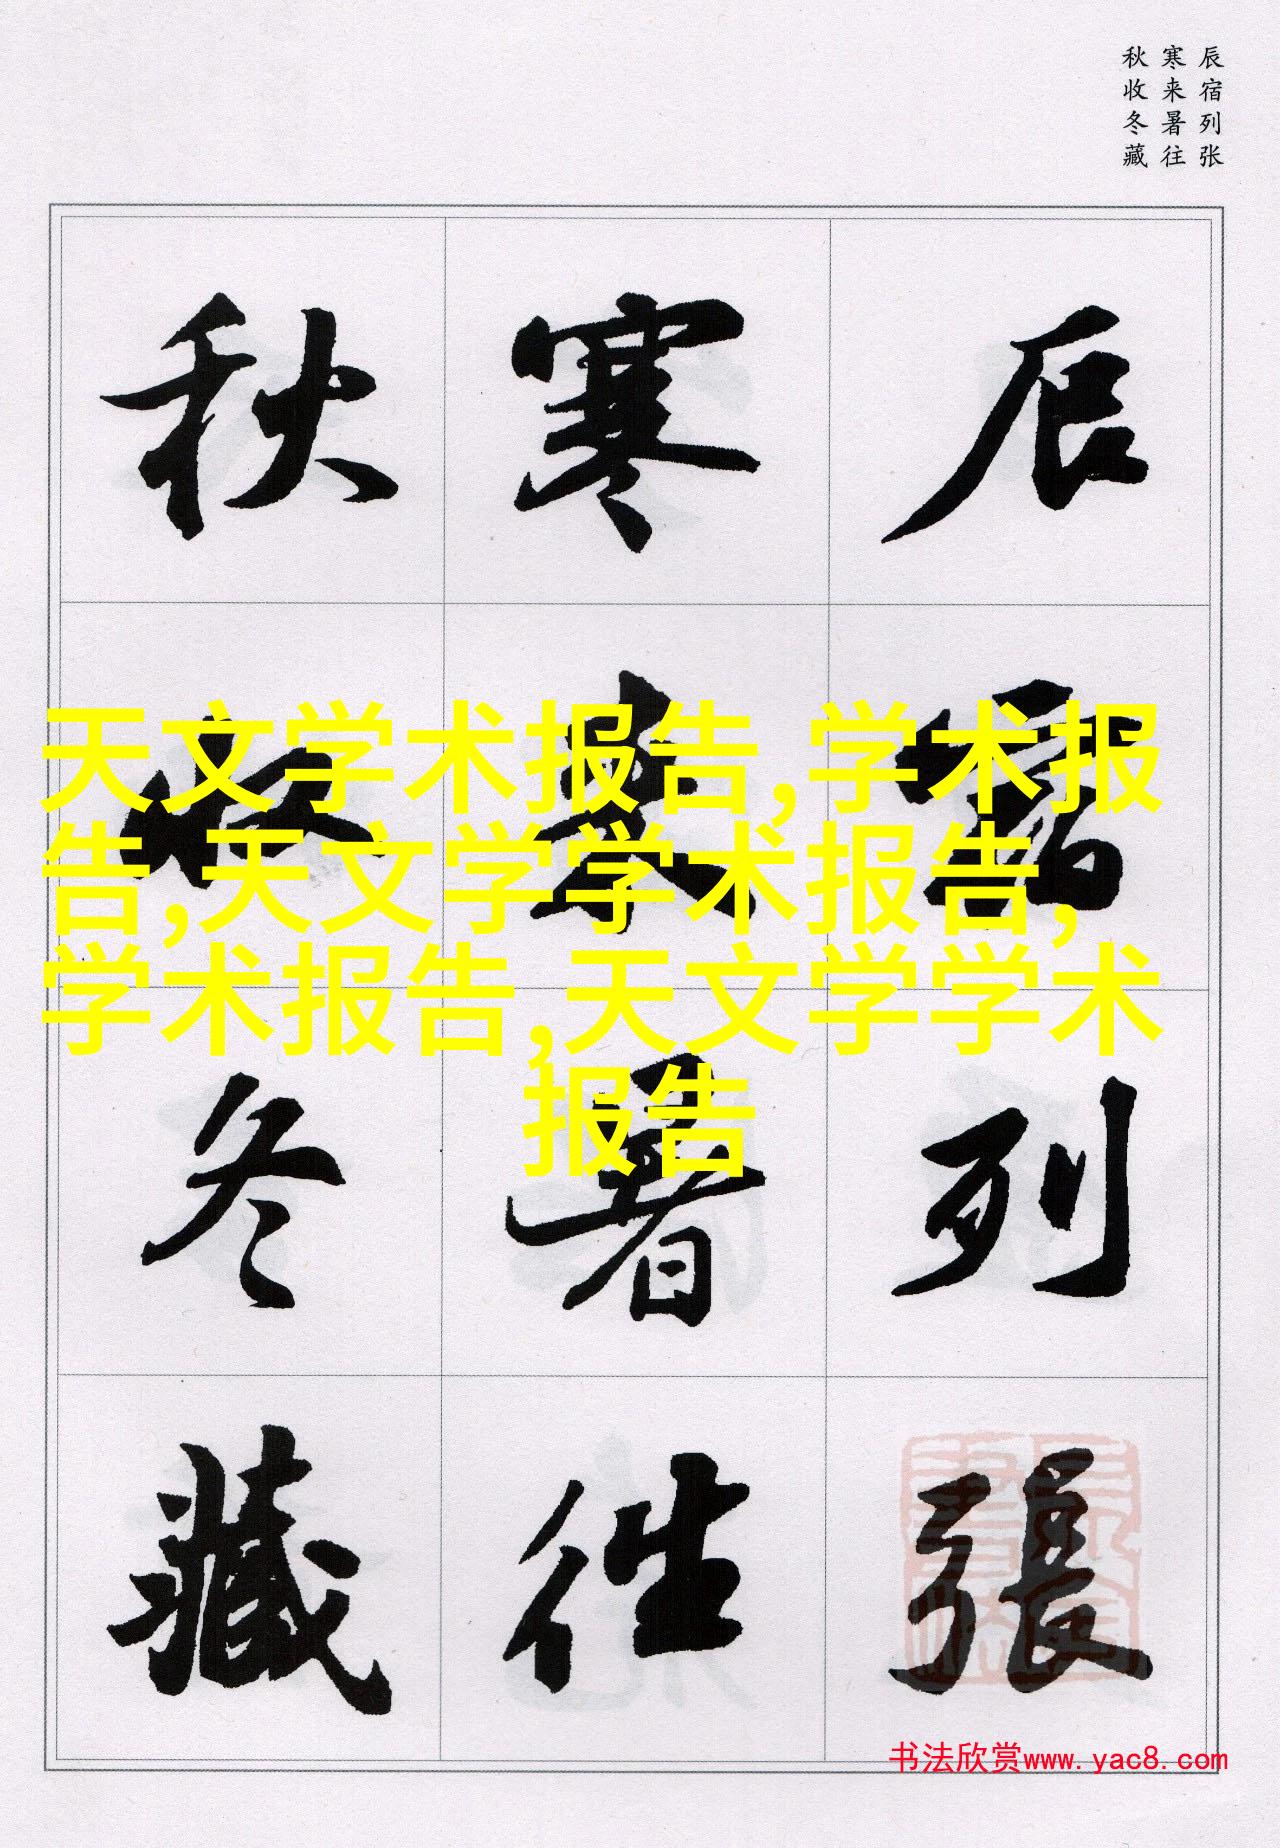 辰宿列张
寒来暑往
秋收冬藏
辰宿列張
寒来暑往
秋收冬藏
天文学术报告,学术报
告,天文学学术报告,
学术报告,天文学学术
报告
书法欣赏www.yac8.com